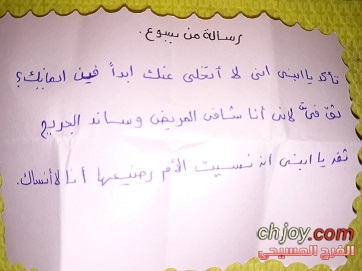 رسالة من يسوع.
تأكد يا ابني اني لا أتخلى عنك ابداً فين ايمانك؟
ثق فيَّ لاني أنا شافى المريض وساند الجريح
ثقد يا ابنى ان نسيت الأم رضيعها أنا لا أنساك.
chjoy.com
الفرح المسيحي